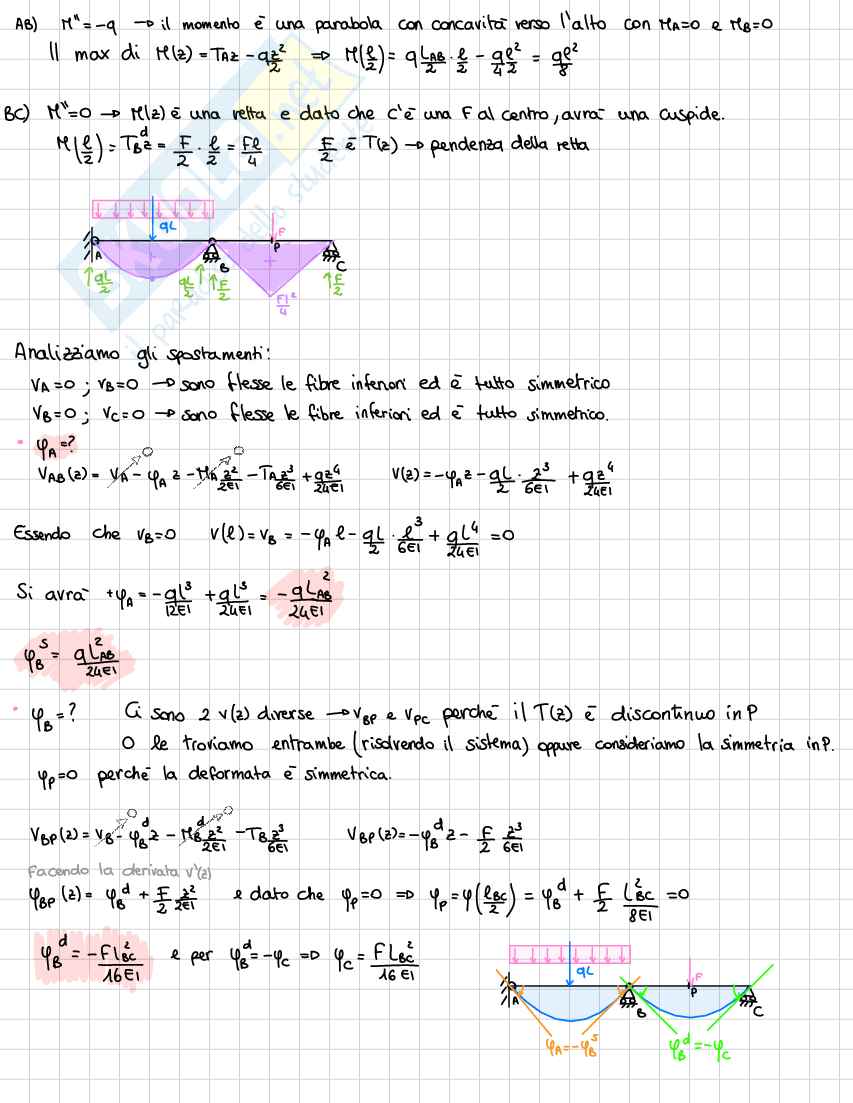 AB) M''=-q → il momento è una parabola con concavità verso l'alto con MA=0 e MB=0
Il max di M(z) = TAz - qz²/2 ⇒ M(l/2) = qLAB/2 · l/2 - ql²/4·2 = ql²/8
BC) M''=0 → M(z) è una retta e dato che c'è una F al centro, avrà una cuspide.
M(l/2) = TB^d z = F/2 · l/2 = Fl/4 F/2 è T(z) → pendenza della retta
qL
F
A
B
P
C
qL/2
qL/2
F/2
F/2
Fl²/4
Analizziamo gli spostamenti:
vA=0 ; vB=0 → sono flesse le fibre inferiori ed è tutto simmetrico
vB=0 ; vC=0 → sono flesse le fibre inferiori ed è tutto simmetrico.
• φA=?
VAB(z) = VA - φA z - MA z²/2EI - TA z³/6EI + qz⁴/24EI V(z) = -φAz - qL/2 · z³/6EI + qz⁴/24EI
Essendo che vB=0 v(l) = vB = -φA l - qL/2 · l³/6EI + qL⁴/24EI = 0
Si avrà +φA = -qL³/12EI + qL³/24EI = -qLAB²/24EI
φB^s = qLAB²/24EI
• φB=? Ci sono 2 v(z) diverse → vBP e vPC perché il T(z) è discontinuo in P
O le troviamo entrambe (risolvendo il sistema) oppure consideriamo la simmetria in P.
φP=0 perché la deformata è simmetrica.
VBP(z) = vB - φB^d z - MB^d z²/2EI - TB z³/6EI VBP(z) = -φB^d z - F/2 z³/6EI
Facendo la derivata v'(z)
φBP(z) = φB^d + F/2 z²/2EI e dato che φP=0 ⇒ φP = φ(lBC/2) = φB^d + F/2 LBC²/8EI = 0
φB^d = -FlBC²/16EI e per φB^d = -φC ⇒ φC = FLBC²/16EI
qL
F
A
B
P
C
φA = -φB^s
φB^d = -φC